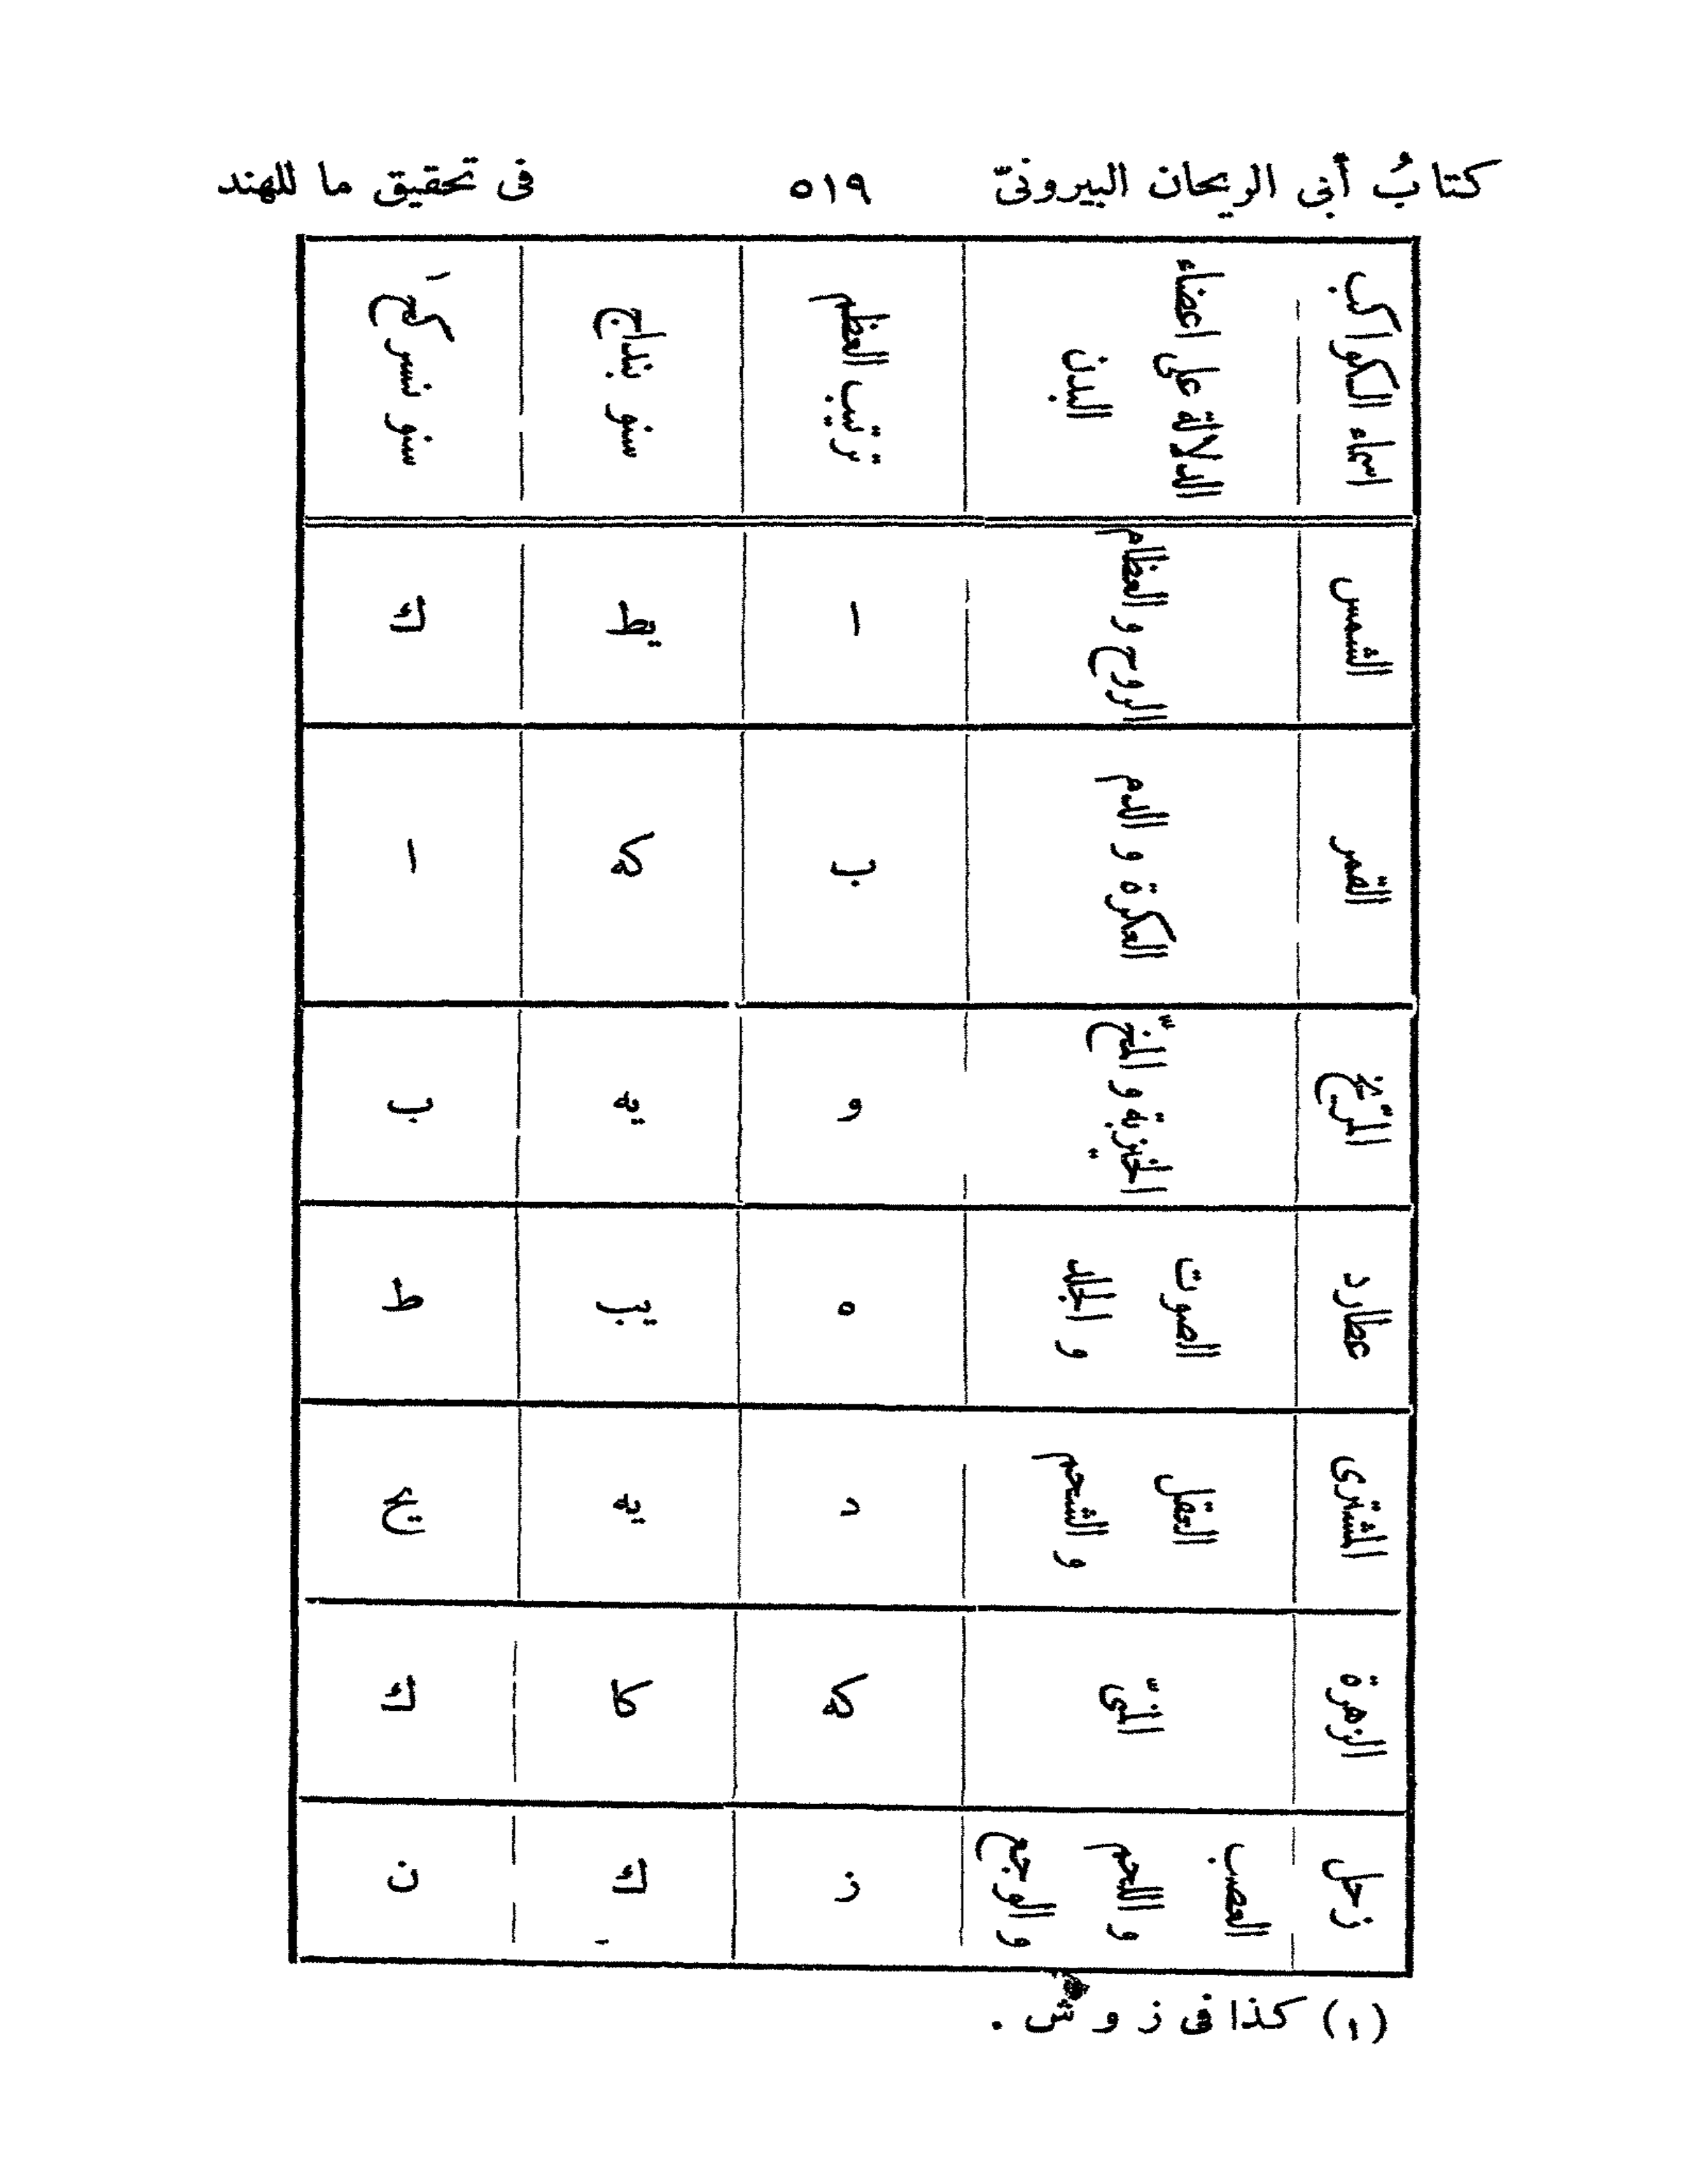 كتابُ أبى الريحان البيرونىّ ٥١٩ فى تحقيق ما للهند
اسماء الكواكب
الدلالة على اعضاء
البدن
ترتيب العظم
سنو بنداج
سنو نسركج١
الشمس
الروح و العظام
ا
يط
ك
القمر
العكرة و الدم
ب
كه
ا
المرّيخ
و المخّ
و
يه
ب
عطارد
الصوت
و الجلد
ه
يز
ط
المشترى
العقل
و الشحم
د
يه
يح
الزهرة
المنىّ
كه
كا
ك
زحل
العصب
و اللحم
و الوجع
ز
ك
ن
(١) كذا فى ز و ش .